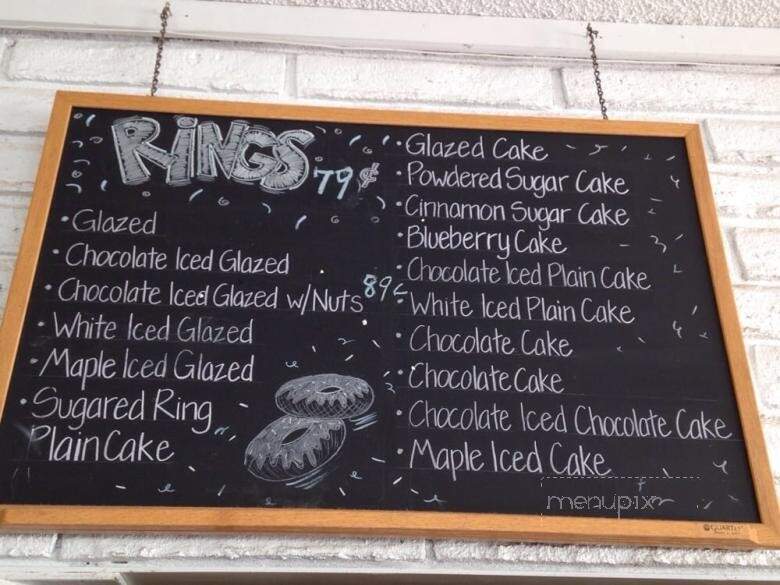 RINGS 79¢
• Glazed
• Chocolate Iced Glazed
• Chocolate Iced Glazed w/Nuts 89¢
• White Iced Glazed
• Maple Iced Glazed
• Sugared Ring
Plain Cake
• Glazed Cake
• Powdered Sugar Cake
• Cinnamon Sugar Cake
• Blueberry Cake
• Chocolate Iced Plain Cake
• White Iced Plain Cake
• Chocolate Cake
• Chocolate Cake
• Chocolate Iced Chocolate Cake
• Maple Iced Cake
menupix
QUARTET